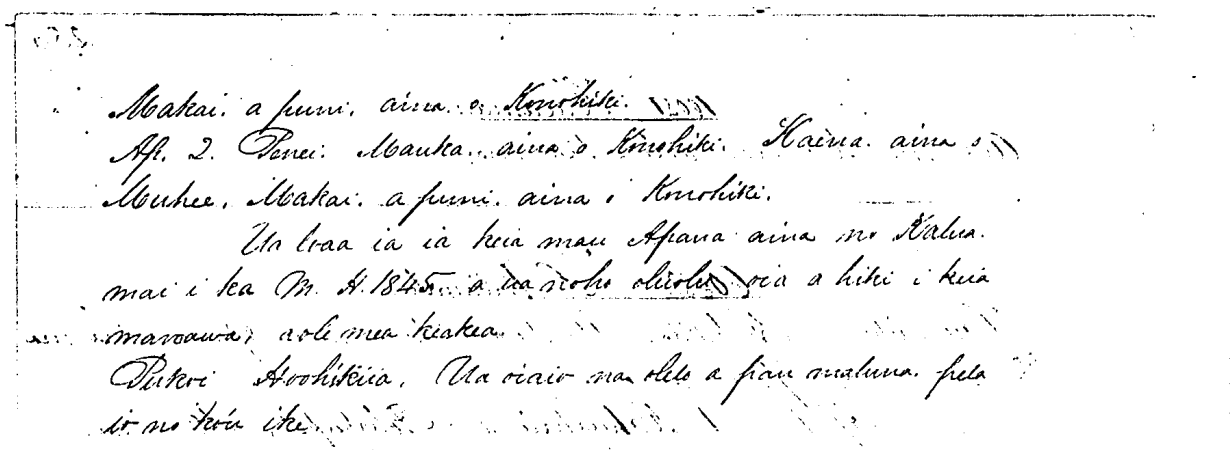 Makai. a puni. aina o Konohiki.
Ap. 2. Penei. Mauka. aina o Konohiki. Kaena. aina o
Muhee. Makai. a puni. aina o Konohiki.
Ua loaa ia ia keia mau Apana aina no Kalua.
mai i ka M. H. 1845. a ua noho oluolu oia a hiki i keia
manawa, aole mea keakea.
Pukoi Hoohikiia. Ua oiaio na olelo a pau maluna. pela
io no ko'u ike.